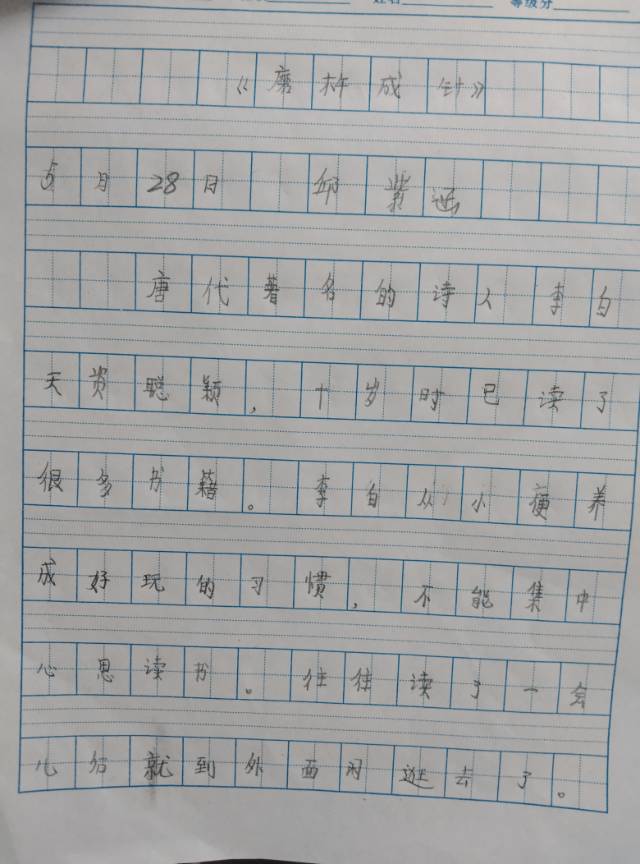 等级分
《磨杵成针》
5月28日 邱紫涵
唐代著名的诗人李白
天资聪颖,十岁时已读了
很多书籍。李白从小便养
成好玩的习惯,不能集中
心思读书。往往读了一会
儿后就到外面闲逛去了。